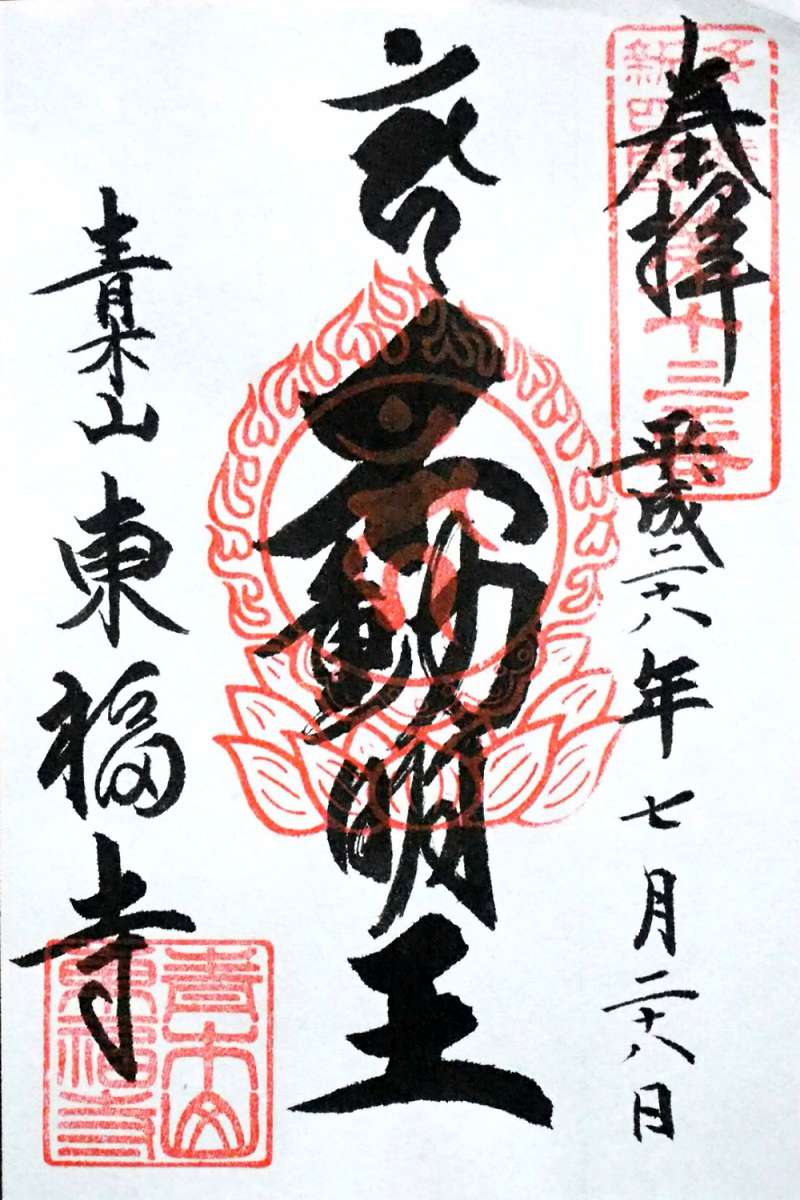 奉拝
平成二十八年七月二十八日
十三番
不動明王
青木山東福寺
青木山
東福寺